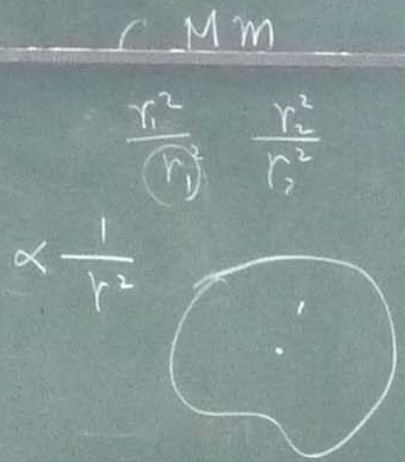 M m
r₁² r₂²
r₁² r₂²
∝ 1
r²